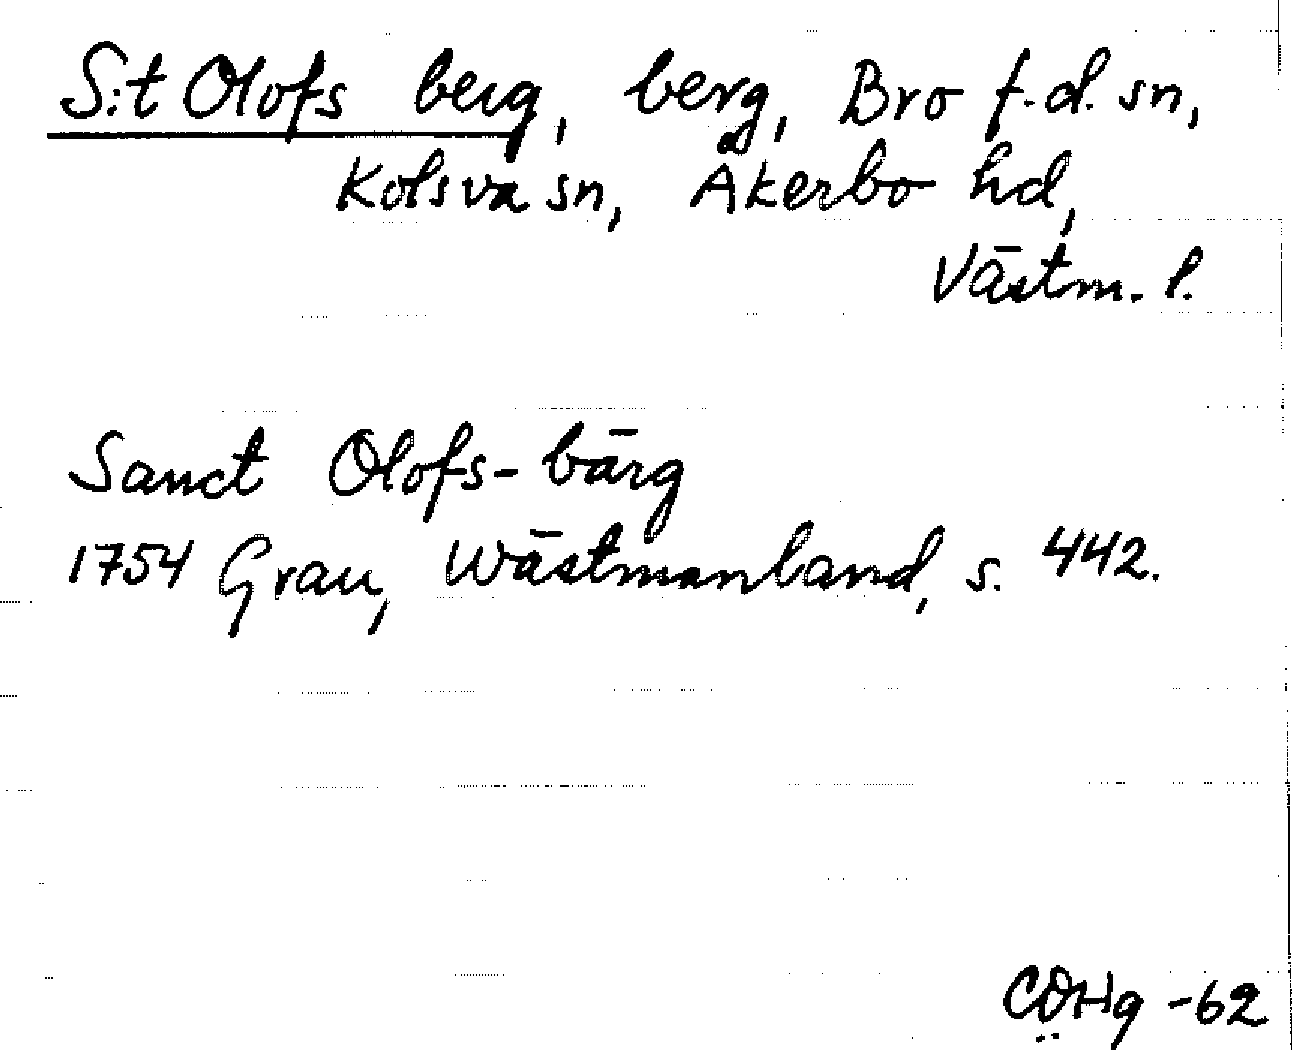 S:t Olofs berg, berg, Bro f.d. sn,
Kolsva sn, Åkerbo hd,
Västm. l.
Sanct Olofs-bärg
1754 Grau, Wästmanland, s. 442.
-62